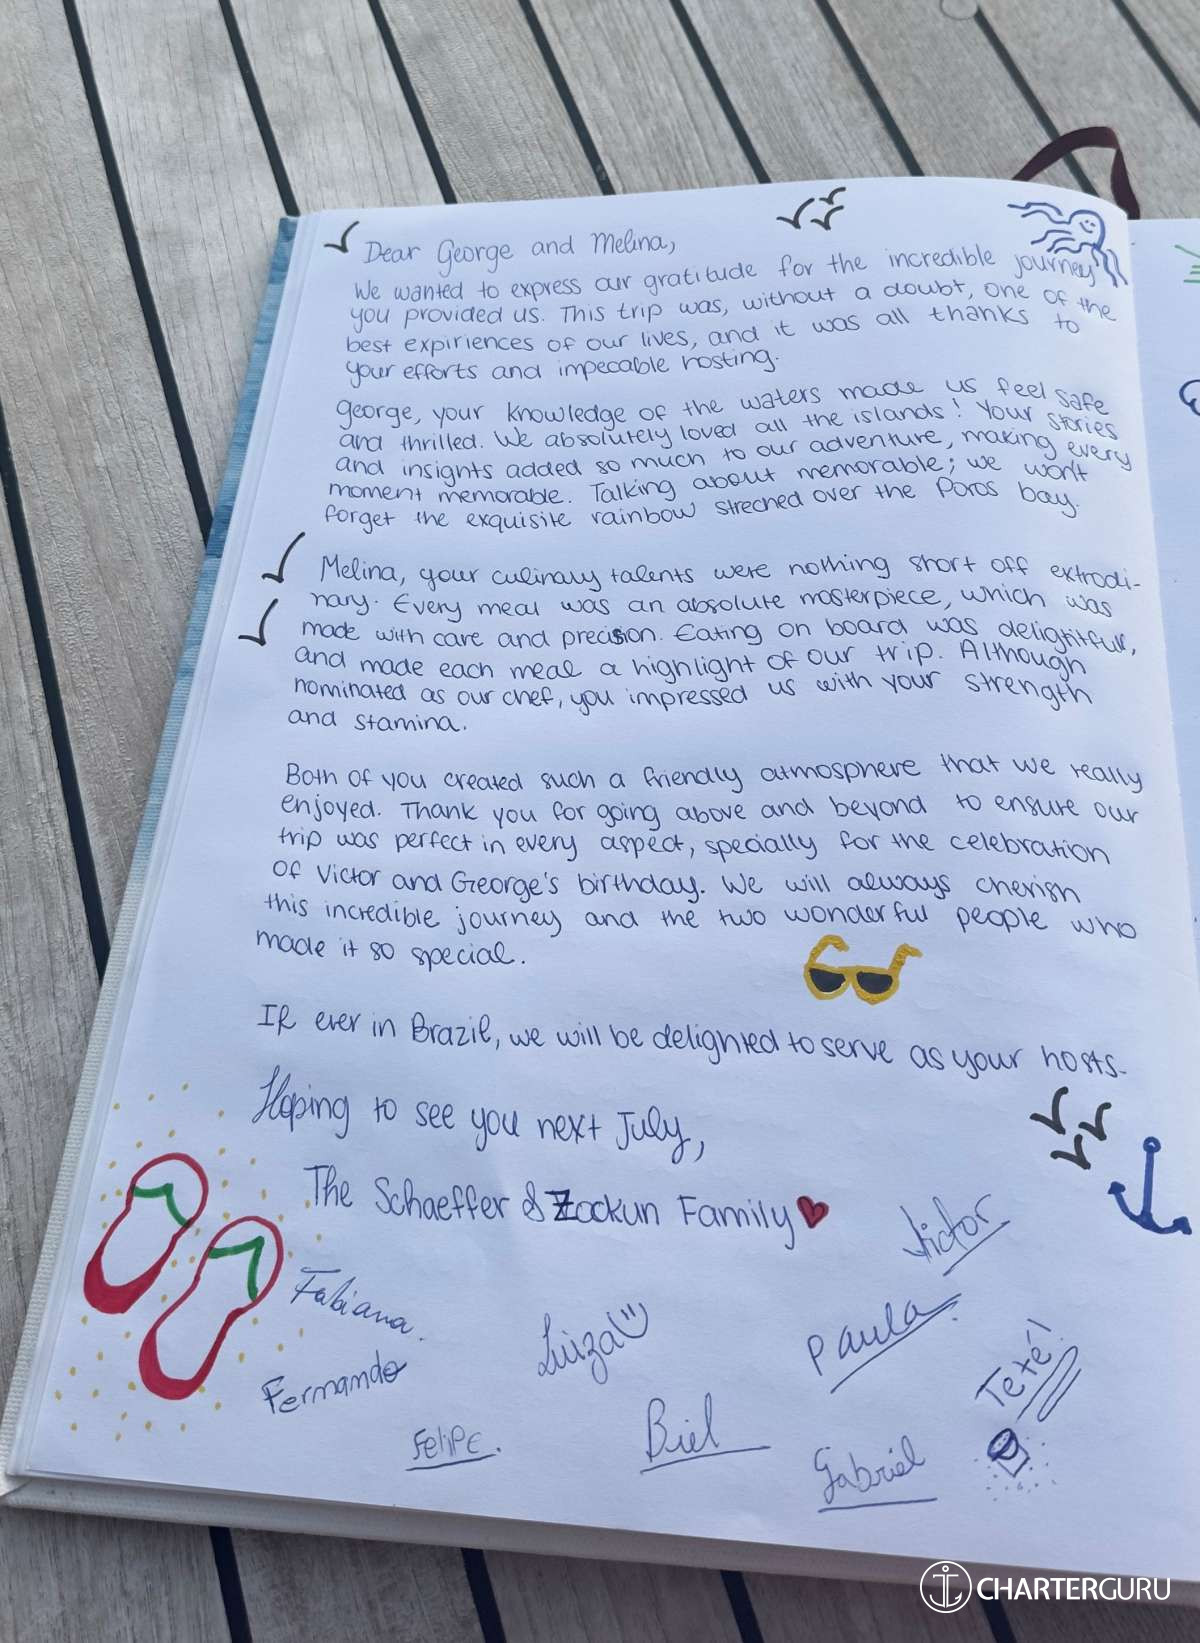 Dear George and Melina,
We wanted to express our gratitude for the incredible journey
you provided us. This trip was, without a doubt, one of the
best expiriences of our lives, and it was all thanks to
your efforts and impecable hosting.
George, your knowledge of the waters made us feel safe
and thrilled. We absolutely loved all the islands! Your stories
and insights added so much to our adventure, making every
moment memorable. Talking about memorable; we won't
forget the exquisite rainbow streched over the Poros bay.
Melina, your culinary talents were nothing short off extrodi-
nary. Every meal was an absolute masterpiece, which was
made with care and precision. Eating on board was delightful,
and made each meal a highlight of our trip. Although
nominated as our chef, you impressed us with your strength
and stamina.
Both of you created such a friendly atmosphere that we really
enjoyed. Thank you for going above and beyond to ensure our
trip was perfect in every aspect, specially for the celebration
of Victor and George's birthday. We will always cherish
this incredible journey and the two wonderful people who
made it so special.
If ever in Brazil, we will be delighted to serve as your hosts.
Hoping to see you next July,
The Schaeffer & Zockun Family
Victor
Fabiana.
Luiza
Paula.
Teté!
Fernando
Felipe.
Biel
Gabriel
CHARTERGURU